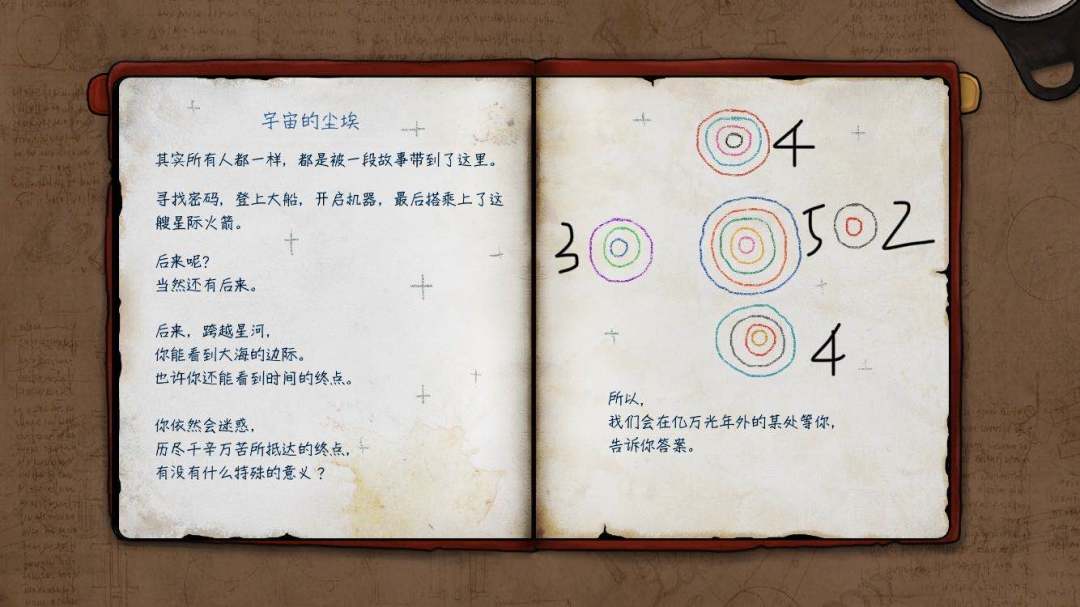 宇宙的尘埃
其实所有人都一样，都是被一段故事带到了这里。
寻找密码，登上大船，开启机器，最后搭乘上了这
艘星际火箭。
后来呢？
当然还有后来。
后来，跨越星河，
你能看到大海的边际。
也许你还能看到时间的终点。
你依然会迷惑，
历尽千辛万苦所抵达的终点，
有没有什么特殊的意义？
4
3
5
2
4
所以，
我们会在亿万光年外的某处等你，
告诉你答案。